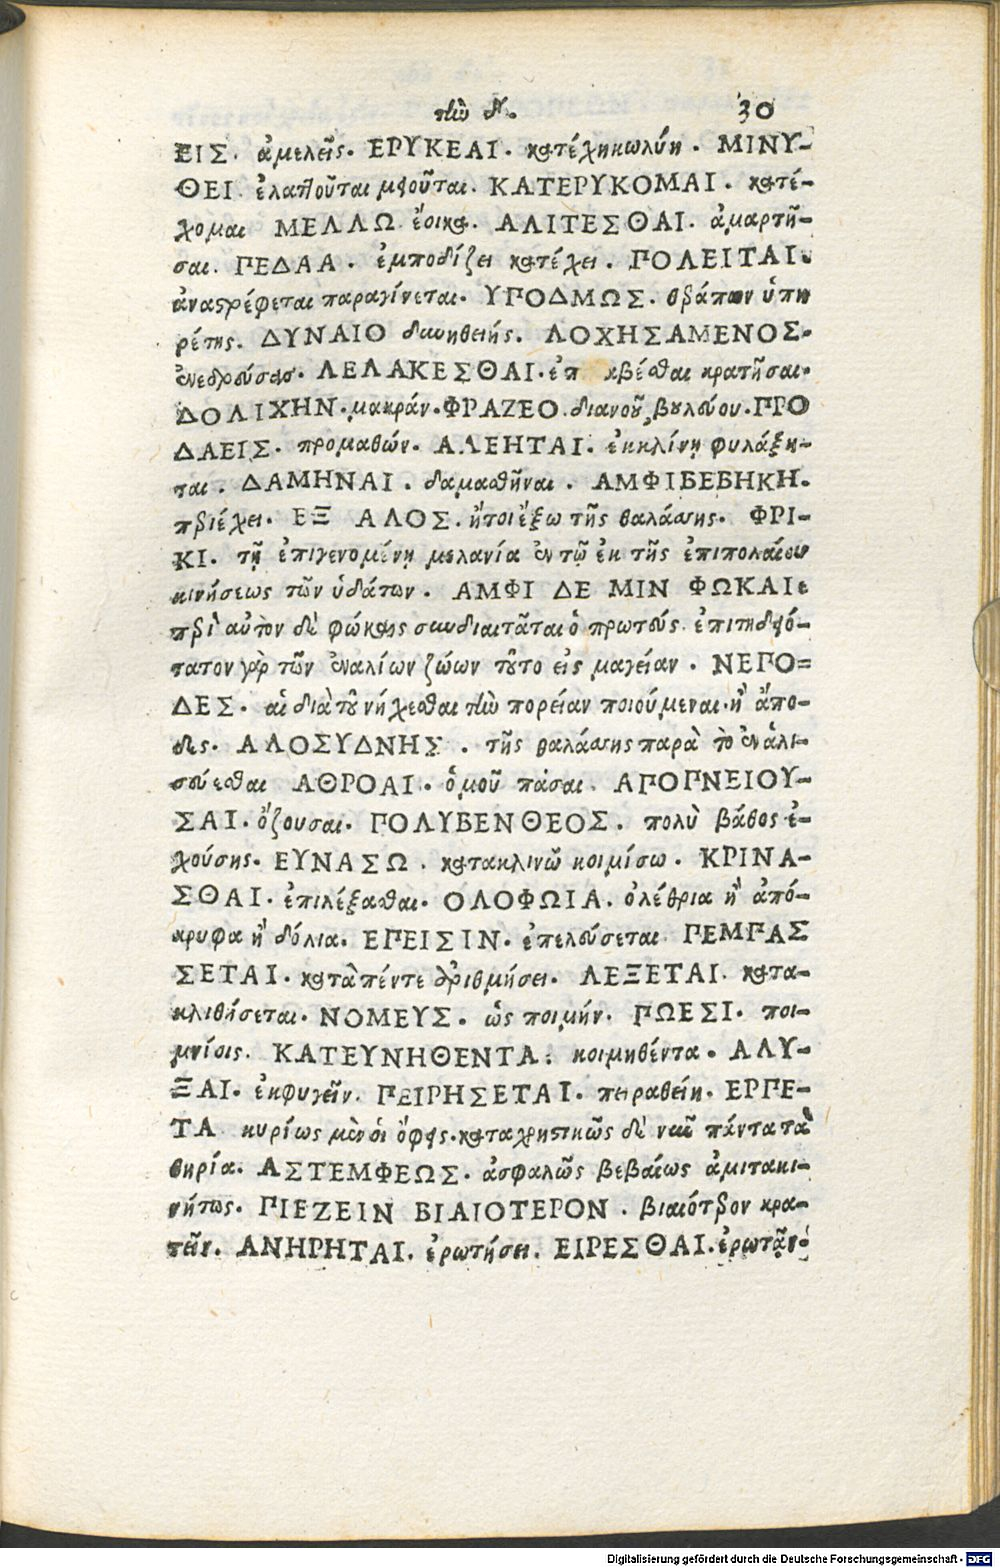 τὴν δ. 30
ΕΙΣ. ἀμελεῖς. ΕΡΥΚΕΑΙ. κατέχῃ κωλύῃ. ΜΙΝΥ-
ΘΕΙ. ἐλαττοῦται μειοῦται. ΚΑΤΕΡΥΚΟΜΑΙ. κατέ-
χομαι ΜΕΛΛΩ. ἔοικα. ΑΛΙΤΕΣΘΑΙ. ἁμαρτῆ-
σαι. ΠΕΔΑΑ. ἐμποδίζει κατέχει. ΠΟΛΕΙΤΑΙ.
ἀναστρέφεται παραγίνεται. ΥΠΟΔΜΩΣ. θεράπων ὑπη
ρέτης. ΔΥΝΑΙΟ δυνηθείης. ΛΟΧΗΣΑΜΕΝΟΣ.
ἐνεδρεύσας. ΛΕΛΑΚΕΣΘΑΙ. κρατῆσαι.
ΔΟΛΙΧΗΝ. μακράν. ΦΡΑΖΕΟ. διανοοῦ, βουλεύου. ΠΡΟ
ΔΑΕΙΣ. προμαθών. ΑΛΕΗΤΑΙ. ἐκκλίνῃ φυλάξη-
ται. ΔΑΜΗΝΑΙ. δαμασθῆναι. ΑΜΦΙΒΕΒΗΚΗ.
περιέχει. ΕΞ ΑΛΟΣ. ἤτοι ἔξω τῆς θαλάσσης. ΦΡΙ-
ΚΙ. τῇ ἐπιγενομένῃ μελανία ἐν τῷ ἐκ τῆς ἐπιπολαίου
κινήσεως τῶν ὑδάτων. ΑΜΦΙ ΔΕ ΜΙΝ ΦΩΚΑΙ.
περὶ αὐτον δὲ φώκαις συνδιαιτᾶται ὁ πρωτεύς. ἐπιτηδειό-
τατον γὰρ τῶν ἐναλίων ζώων τοῦτο εἰς μαγείαν. ΝΕΠΟ=
ΔΕΣ. αἱ διὰ τοῦ νήχεσθαι τὴν πορείαν ποιούμεναι. ἢ ἄπο-
δες. ΑΛΟΣΥΔΝΗΣ. τῆς θαλάσσης παρὰ τὸ ἐν ἁλὶ
σεύεσθαι ΑΘΡΟΑΙ. ὁμοῦ πάσαι. ΑΠΟΠΝΕΙΟΥ-
ΣΑΙ. ὄζουσαι. ΠΟΛΥΒΕΝΘΕΟΣ. πολὺ βάθος ἐ-
χούσης. ΕΥΝΑΣΩ. κατακλινῶ κοιμίσω. ΚΡΙΝΑ-
ΣΘΑΙ. ἐπιλέξασθαι. ΟΛΟΦΩΙΑ. ὀλέθρια ἢ ἀπό-
κρυφα ἢ δόλια. ΕΠΕΙΣΙΝ. ἐπελεύσεται. ΠΕΜΠΑΣ
ΣΕΤΑΙ. κατὰ πέντε ἀριθμήσει. ΛΕΞΕΤΑΙ. κατα-
κλιθήσεται. ΝΟΜΕΥΣ. ὡς ποιμήν. ΠΩΕΣΙ. ποι-
μνίοις. ΚΑΤΕΥΝΗΘΕΝΤΑ. κοιμηθέντα. ΑΛΥ-
ΞΑΙ. ἐκφυγεῖν. ΠΕΙΡΗΣΕΤΑΙ. πειραθείη. ΕΡΠΕ-
ΤΑ κυρίως μὲν οἱ ὄφεις. καταχρηστικῶς δὲ καὶ πάντα τὰ
θηρία. ΑΣΤΕΜΦΕΩΣ. ἀσφαλῶς βεβαίως ἀμετακι-
νήτως. ΠΙΕΖΕΙΝ ΒΙΑΙΟΤΕΡΟΝ. βιαιότερον κρα-
τεῖν. ΑΝΗΡΗΤΑΙ. ἐρωτήσει. ΕΙΡΕΣΘΑΙ. ἐρωτᾶν.
Digitalisierung gefördert durch die Deutsche Forschungsgemeinschaft - DFG